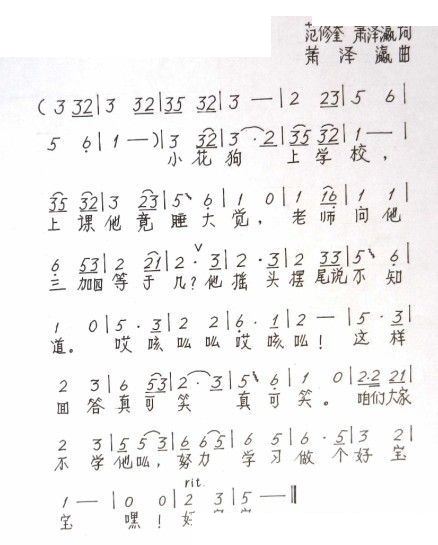 范修奎 萧泽瀛词
萧泽瀛曲
( 3 32 | 3 32 | 35 32 | 3 — | 2 23 | 5 6 |
5 6 | 1 — ) | 3 32 | 3 · 2 | 35 32 | 1 — |
小花狗 上学校，
35 32 | 3 23 | 5 6 | 1 0 | 1 16 | 1 1 |
上课他竟睡大觉，老师问他
6 53 | 2 21 | 2 · 3 | 2 · 3 | 2 33 | 5 6 |
三加四等于几？他摇头摆尾说不知
1 0 | 5 · 3 | 2 2 | 6 · 1 | 2 — | 5 · 3 |
道。 哎咳呱呱哎咳呱！ 这样
2 3 | 6 53 | 2 · 3 | 5 6 | 1 0 | 2·2 21 |
回答真可笑 真可笑。 咱们大家
2 3 | 5 53 | 6 65 | 6 5 | 6 · 5 | 3 2 |
不学他呱，努力 学习做个好宝
rit.
1 — | 0 0 | 2 3 | 5 — ‖
宝 嘿！